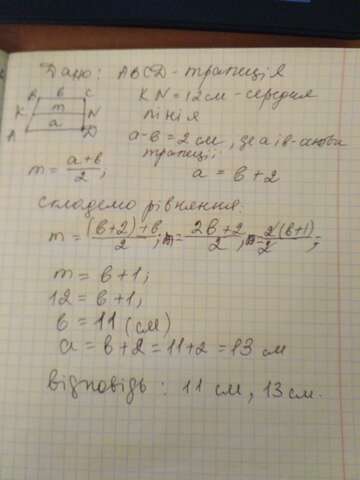 Дано: ABCD - трапеція
B в C
KN = 12 см - середня
K m N
лінія
A a D
a-в = 2 см, де a і в - основи
трапеції
m = a+в/2;
a = в + 2
Складемо рівняння:
m = (в+2)+в/2; m = 2в+2/2; m = 2(в+1)/2;
m = в+1;
12 = в+1;
в = 11 (см)
a = в+2 = 11+2 = 13 см
Відповідь: 11 см, 13 см.